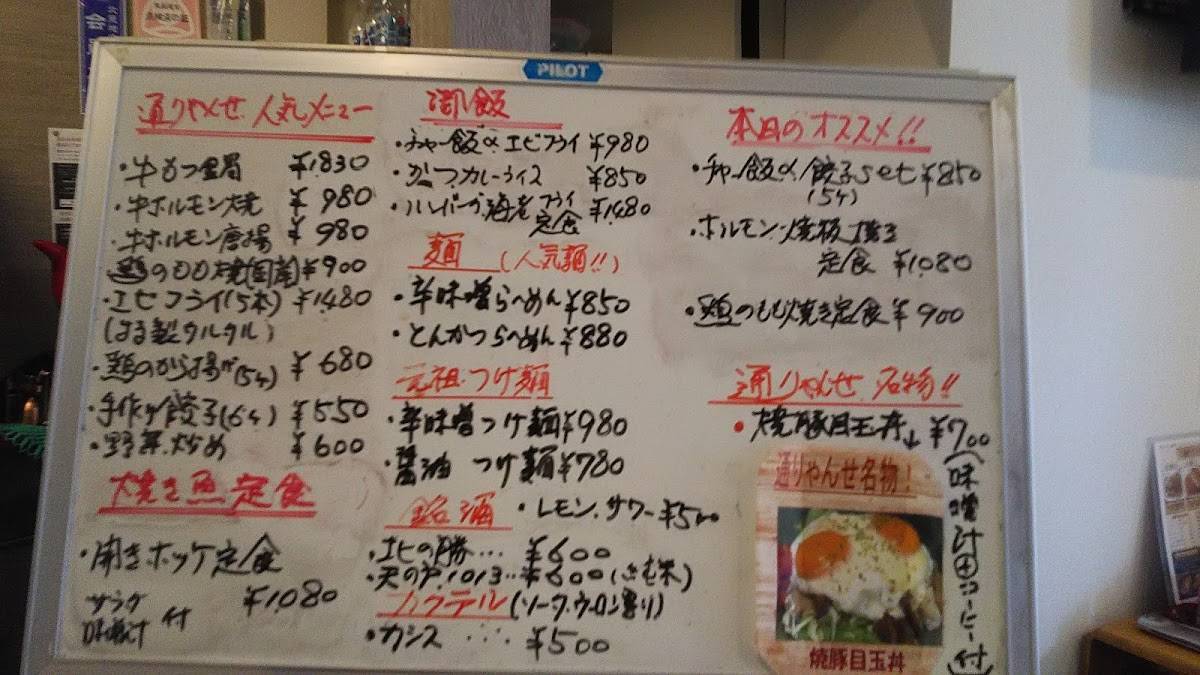 PILOT
通りゃんせ 人気メニュー
・牛もつ ¥1,830
・牛ホルモン焼 ¥980
・牛ホルモン唐揚 ¥980
鶏のもも焼(国産) ¥900
・エビフライ(5本) ¥1,480
(はる製タルタル)
・鶏のから揚げ(5ケ) ¥680
・手作り餃子(6ケ) ¥550
・野菜炒め ¥600
焼き魚定食
・開きホッケ定食
¥1,080
サラダ
味噌汁 付
御飯
・チャー飯&エビフライ ¥980
・かつカレーライス ¥850
・ハンバーグ海老フライ
定食 ¥1,480
麺 (人気麺!!)
・辛味噌らーめん ¥850
・とんかつらーめん ¥880
元祖つけ麺
・辛味噌つけ麺 ¥980
・醤油 つけ麺 ¥780
銘酒
・レモンサワー ¥500
の勝… ¥600
・天の戸1013… ¥600
カクテル (ソーダ,ウーロン割り)
・カシス ‥‥ ¥500
本日のオススメ!!
・チャー飯&餃子set ¥850
(5ケ)
・ホルモン焼
定食 ¥1,080
・鶏のもも焼き定食 ¥900
通りゃんせ名物!!
・焼豚目玉丼 ↓ ¥700
(味噌汁コーヒー付)
通りゃんせ名物!
焼豚目玉丼